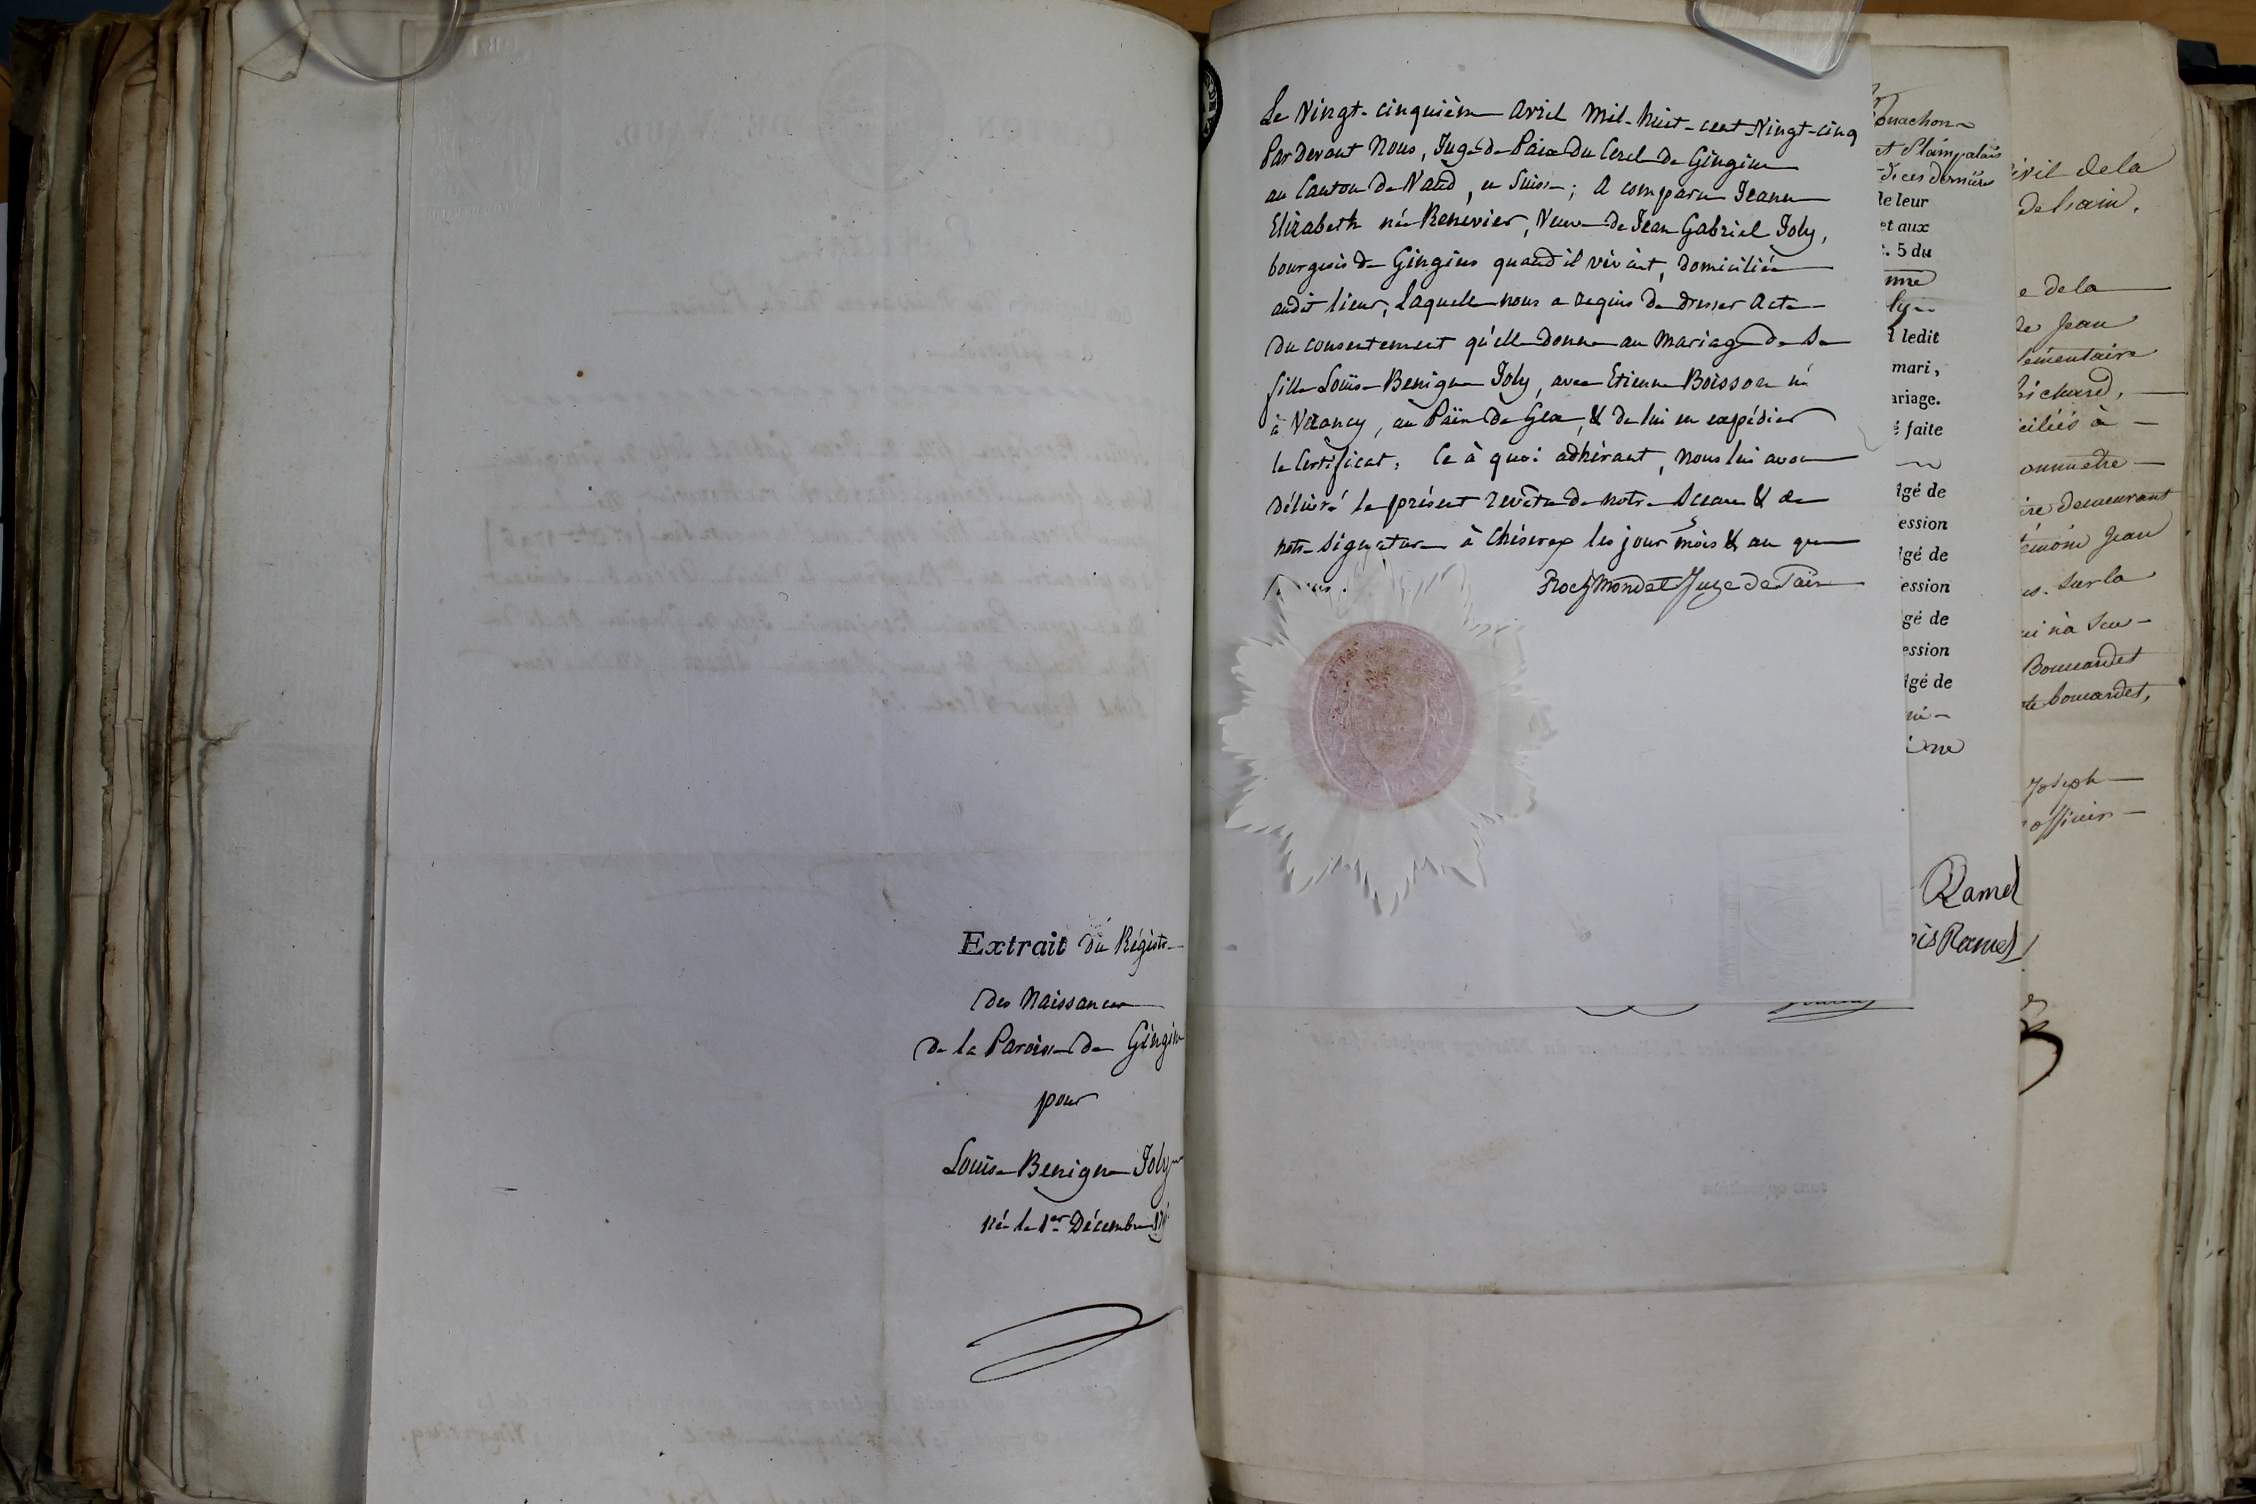 Extrait du Régistre
des Naissances
de la Paroisse de Gingins
pour
Louise Benigne Joly
née le 1er Décembre
Le Vingt-cinquième Avril Mil-huit-cent-Vingt-cinq
Par devant Nous, Juge de Paix du Cercle de Gingins
au Canton de Vaud, en Suisse; A comparu Jeanne
Elizabeth née Renevier, Veuve de Jean Gabriel Joly,
bourgeois de Gingins quand il vivait, domiciliée
audit lieu, laquelle nous a requis de dresser Acte
du consentement qu'elle donne au Mariage de sa
fille Louise Benigne Joly, avec Etienne Boisson né
à Vézancy, au Païs de Gex, & de lui en expédier
le Certificat. Ce à quoi adhérant, nous lui avons
délivré le présent revêtu de notre Sceau & de
notre signature à Chéserex les jour mois & an que
Juge de Paix
onachon
et Plainpalais
de ces dernières
de leur
et aux
. 5 du
ledit
mari,
ariage.
faite
gé de
ession
gé de
ession
gé de
ession
gé de
Ramel
Ramel
ivil de la
de l'ain.
e de la
de Jean
lementaire
Richard,
ciliés à
onnu être
ire demeurant
témoin Jean
sur la
Boucardet
boucardet,
Joseph
officier